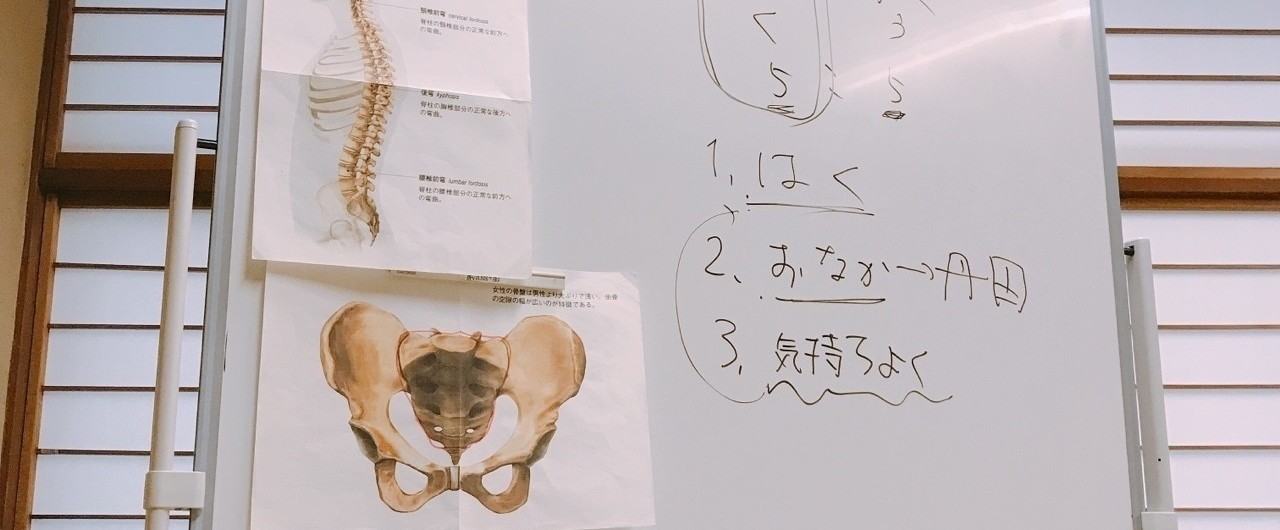 頸椎前弯 cervical lordosis
脊柱の頸椎部分の正常な前方へ
の弯曲。
後弯 kyphosis
脊柱の胸椎部分の正常な後方へ
の弯曲。
腰椎前弯 lumbar lordosis
脊柱の腰椎部分の正常な前方へ
の弯曲。
女性の骨盤は男性より大ぶりで浅い。坐骨
の空隙の幅が広いのが特徴である。
く 3
5 5
1, はく
2, おなか→丹田
3, 気持ちよく